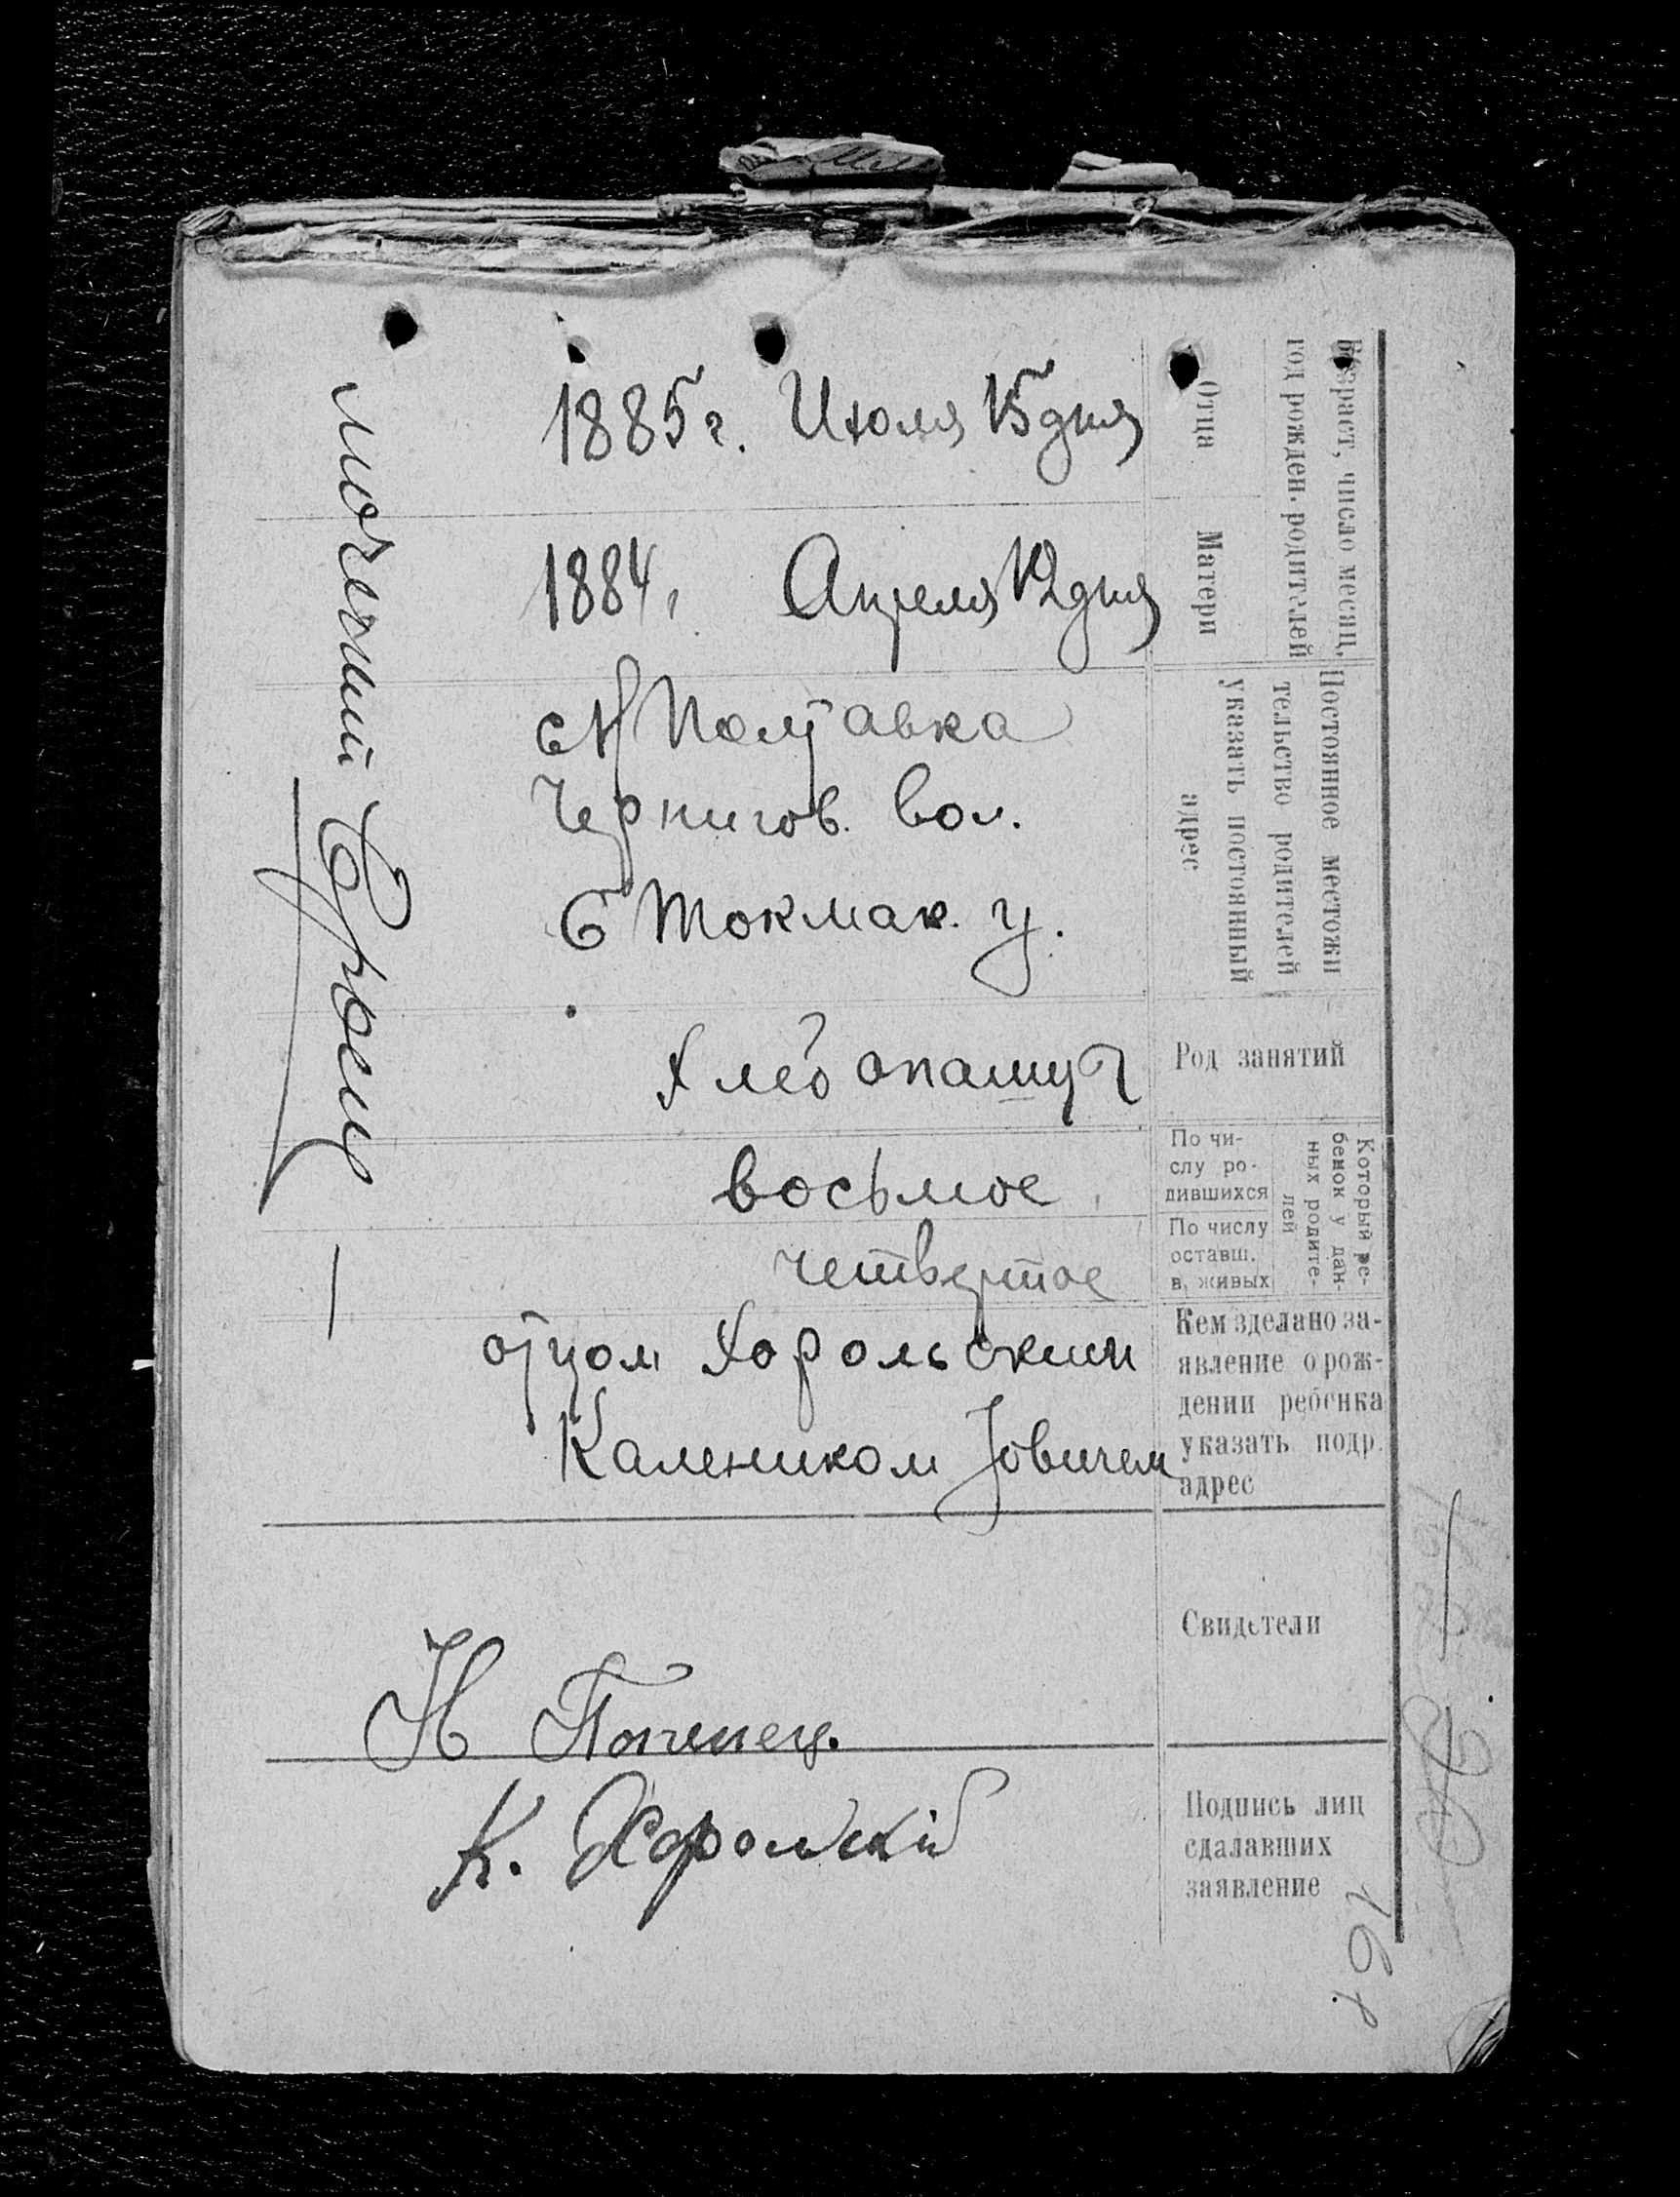 Возраст, число месяц,
год рожден. родителей
Отца
1885 г. Июля 15 дня
Матери
1884, Апреля 12 дня
Постоянное местожи
тельство родителей
указать постоянный
адрес
с Н Полтавка
Чернигов. вол.
Б Токмак. у.
Род занятий
Хлебопашец
Который ре-
бенок у дан-
ных родите-
лей
По чи-
слу ро-
дившихся
восьмое
По числу
оставш.
в, живых
четвертое
Кем зделано за-
явление о рож-
дении ребенка
указать подр.
адрес
отцом Хорольским
Калеником Іовичем
Свидетели
Н
Подпись лиц
сдалавших
заявление
К. Хорольскій